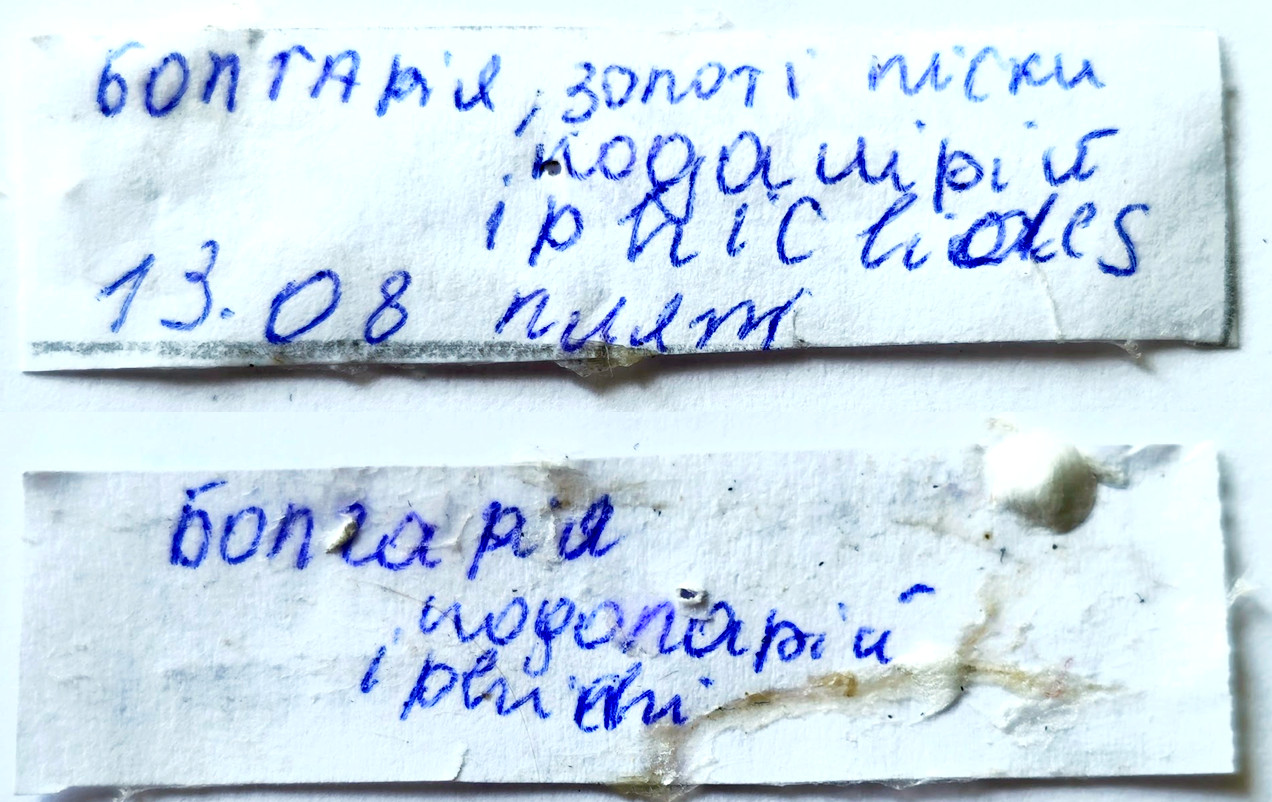 БОЛГАРІЯ, золоті піски
подалірій
iphiclides
13.08 пляж
Болгарія
подоларій